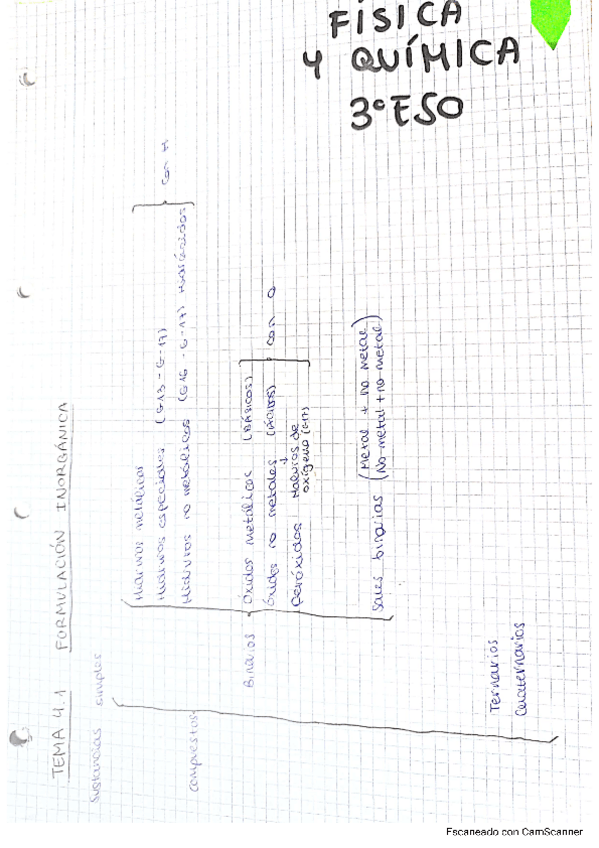 FÍSICA
Y QUÍMICA
3º ESO
TEMA 4.1 FORMULACIÓN INORGÁNICA
Sustancias simples
compuestos
Binarios
Hidruros metálicos
Hidruros especiales (G13 - G-17)
Hidruros no metálicos (G16 - G-17) Hidrácidos
con H
Óxidos metálicos (BÁSICOS)
Óxidos no metales (ÁCIDOS)
Haluros de
oxígeno (G17)
Peróxidos
con O
Sales binarias (Metal + no metal
No-metal + no-metal)
Ternarios
Cuaternarios
Escaneado con CamScanner